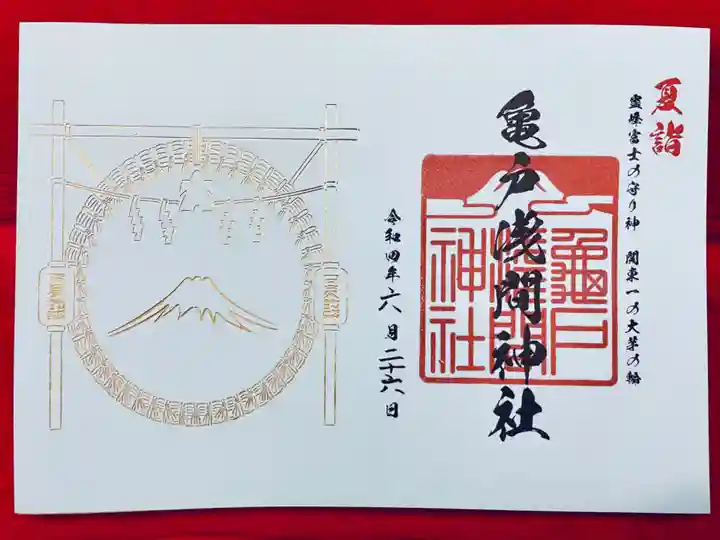 夏詣
霊峰富士の守り神 関東一の大茅の輪
亀戸浅間神社
亀戸浅間神社
令和四年六月二十六日